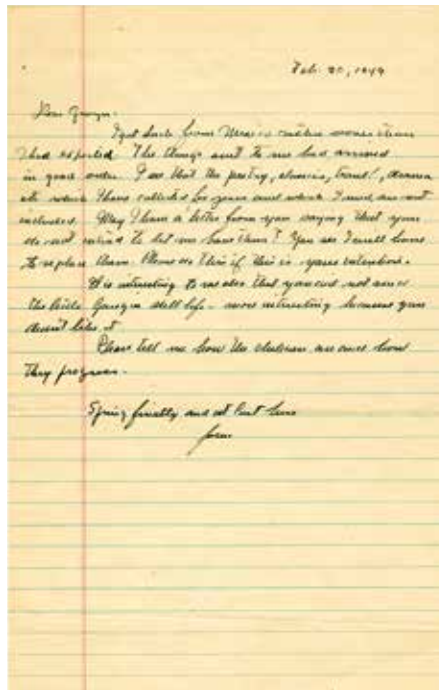 Feb. 20, 1949
Dear George.
I got back from Mexico rather sooner than
I had expected. The things sent to me had arrived
in good order. I see that the poetry, classics, drama
etc which I have collected for years and which I need, are not
included. May I have a letter from you saying that you
do not intend to let me have them? You see I will have
to replace them. Please do this if this is your intention.
It is interesting to me also that you did not send
the little still life - more interesting because you
didn't like it.
Please tell me how the children are and how
they progress.
Spring finally and at last here